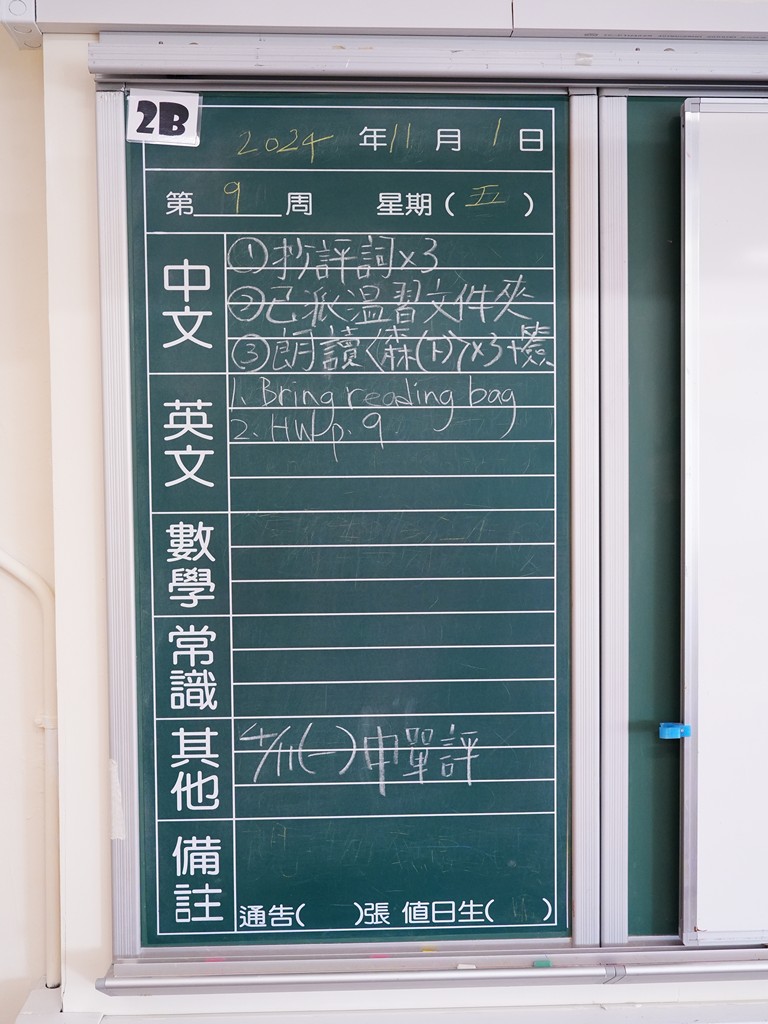 2B
2024 年 11 月 1 日
第 9 周 星期 ( 五 )
中文
①抄評詞x3
②已派溫習文件夾
③朗讀〈森(下)〉x3+簽
英文
1. Bring reading bag
2. HW p. 9
數學
常識
其他
4/11(一)中單評
備註
通告( )張 值日生( )